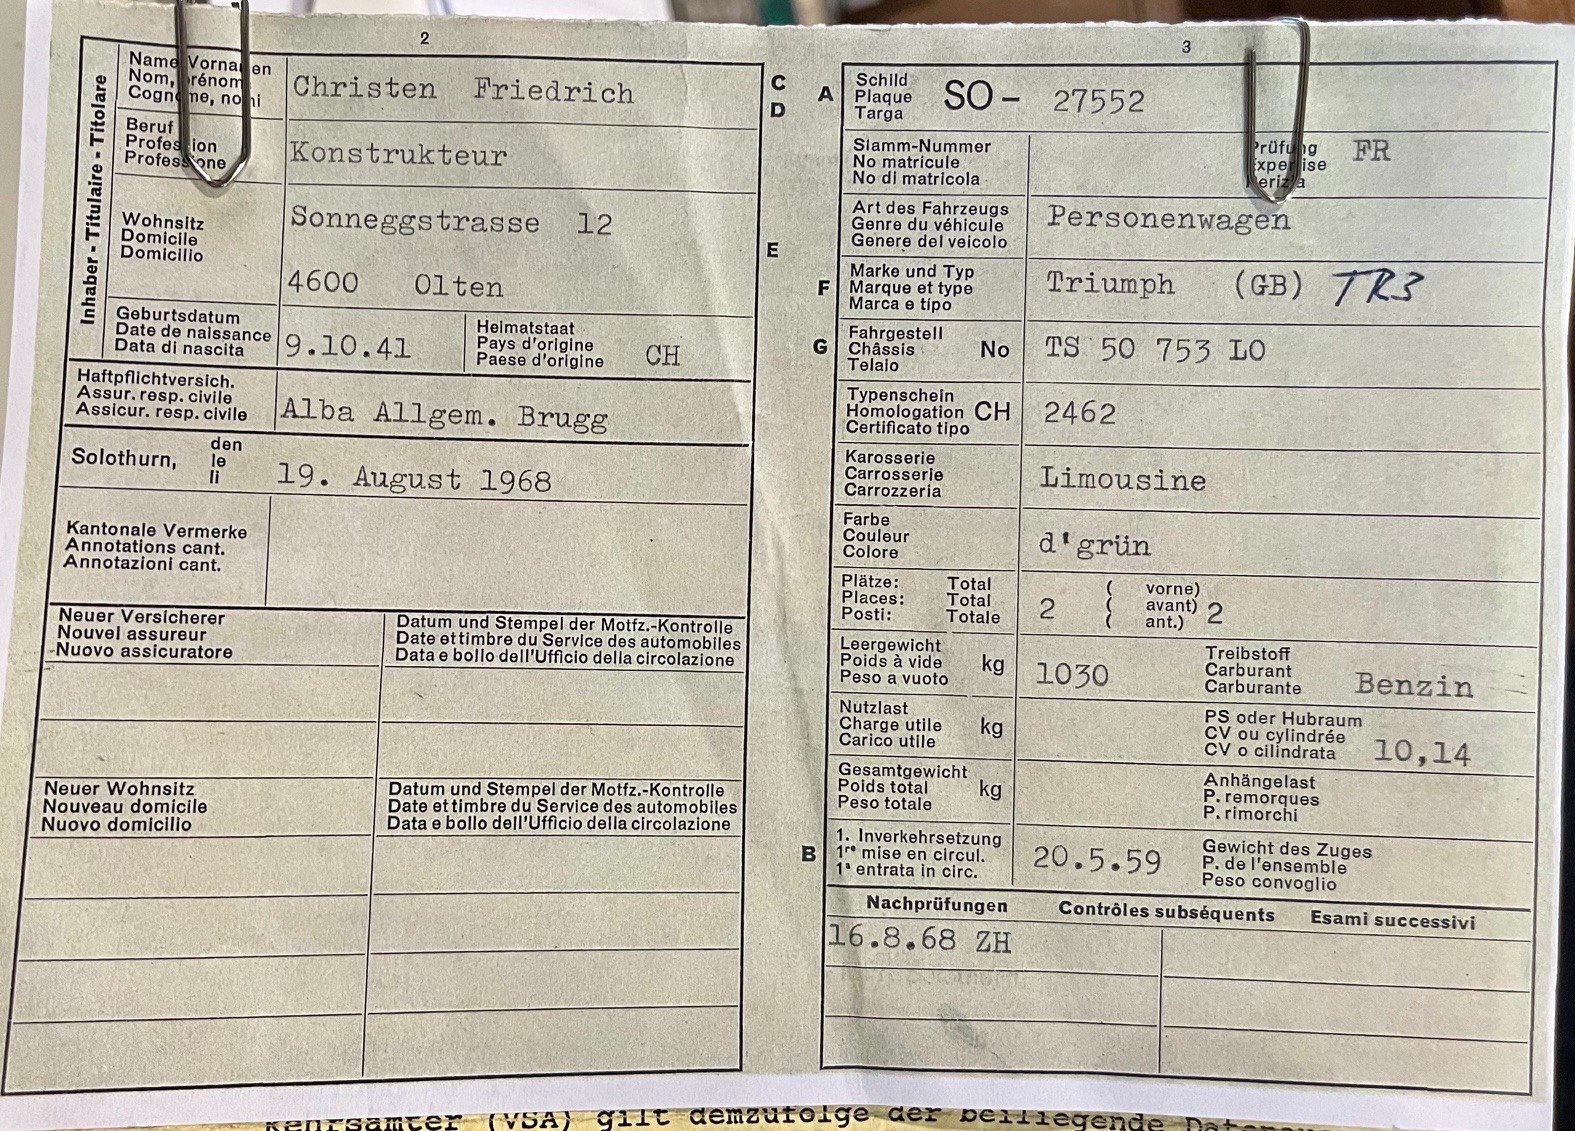 2
Name Vornamen
Nom, prénom
Cognome, nomi
Christen Friedrich
Beruf
Profession
Professione
Konstrukteur
Wohnsitz
Domicile
Domicilio
Sonneggstrasse 12
4600 Olten
Geburtsdatum
Date de naissance
Data di nascita
9.10.41
Heimatstaat
Pays d'origine
Paese d'origine
CH
Inhaber - Titulaire - Titolare
Haftpflichtversich.
Assur. resp. civile
Assicur. resp. civile
Alba Allgem. Brugg
Solothurn,
den
le
li
19. August 1968
Kantonale Vermerke
Annotations cant.
Annotazioni cant.
Neuer Versicherer
Nouvel assureur
Nuovo assicuratore
Datum und Stempel der Motfz.-Kontrolle
Date et timbre du Service des automobiles
Data e bollo dell'Ufficio della circolazione
Neuer Wohnsitz
Nouveau domicile
Nuovo domicilio
Datum und Stempel der Motfz.-Kontrolle
Date et timbre du Service des automobiles
Data e bollo dell'Ufficio della circolazione
C
D
E
3
A
Schild
Plaque
Targa
SO - 27552
Stamm-Nummer
No matricule
No di matricola
Prüfung
Expertise
Perizia
FR
Art des Fahrzeugs
Genre du véhicule
Genere del veicolo
Personenwagen
F
Marke und Typ
Marque et type
Marca e tipo
Triumph (GB) TR3
G
Fahrgestell
Châssis No
Telaio
TS 50 753 LO
Typenschein
Homologation CH
Certificato tipo
2462
Karosserie
Carrosserie
Carrozzeria
Limousine
Farbe
Couleur
Colore
d'grün
Plätze: Total
Places: Total
Posti: Totale
2
( vorne)
( avant) 2
( ant.)
Leergewicht
Poids à vide kg
Peso a vuoto
1030
Treibstoff
Carburant
Carburante
Benzin
Nutzlast
Charge utile kg
Carico utile
PS oder Hubraum
CV ou cylindrée
CV o cilindrata
10,14
Gesamtgewicht
Poids total kg
Peso totale
Anhängelast
P. remorques
P. rimorchi
B
1. Inverkehrsetzung
1re mise en circul.
1a entrata in circ.
20.5.59
Gewicht des Zuges
P. de l'ensemble
Peso convoglio
Nachprüfungen Contrôles subséquents Esami successivi
16.8.68 ZH
(VSA) gilt demzufolge der beiliegende